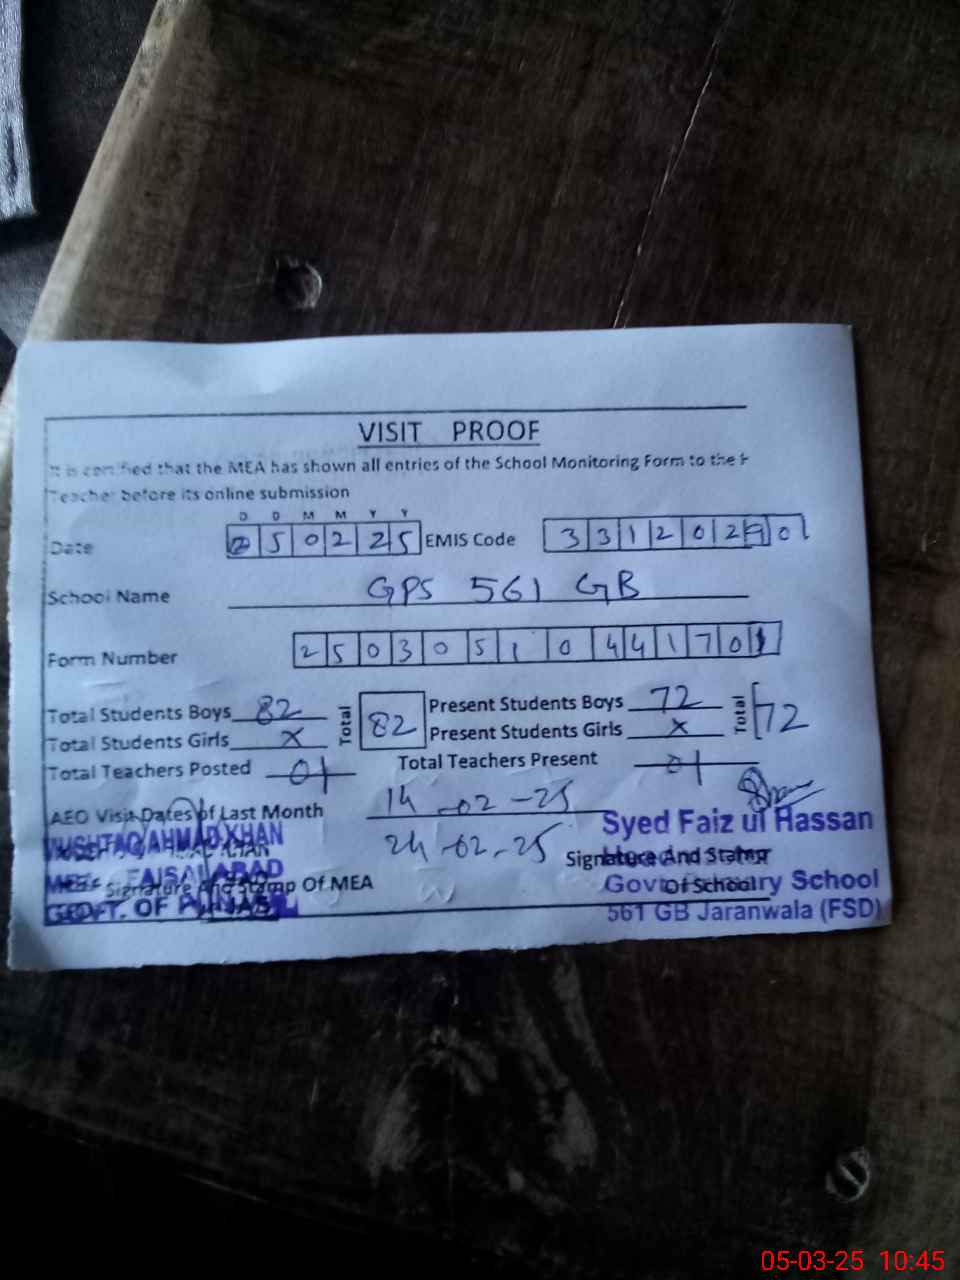 VISIT PROOF
It is certified that the MEA has shown all entries of the School Monitoring Form to the
Teacher before its online submission
D D M M Y Y
Date 250225 EMIS Code 33120290
School Name GPS 561 GB
Form Number 25030510441701
Total Students Boys 82 Total 82 Present Students Boys 72 Total 72
Total Students Girls X Present Students Girls X
Total Teachers Posted 01 Total Teachers Present 01
AEO Visit Dates of Last Month 14-02-25
24-02-25
MUSHTAQ AHMAD KHAN
FAISALABAD
Signature And Stamp Of MEA
GOVT. OF PUNJAB
Syed Faiz ul Hassan
Signature And Stamp
Of School
Govt Primary School
561 GB Jaranwala (FSD)
05-03-25 10:45